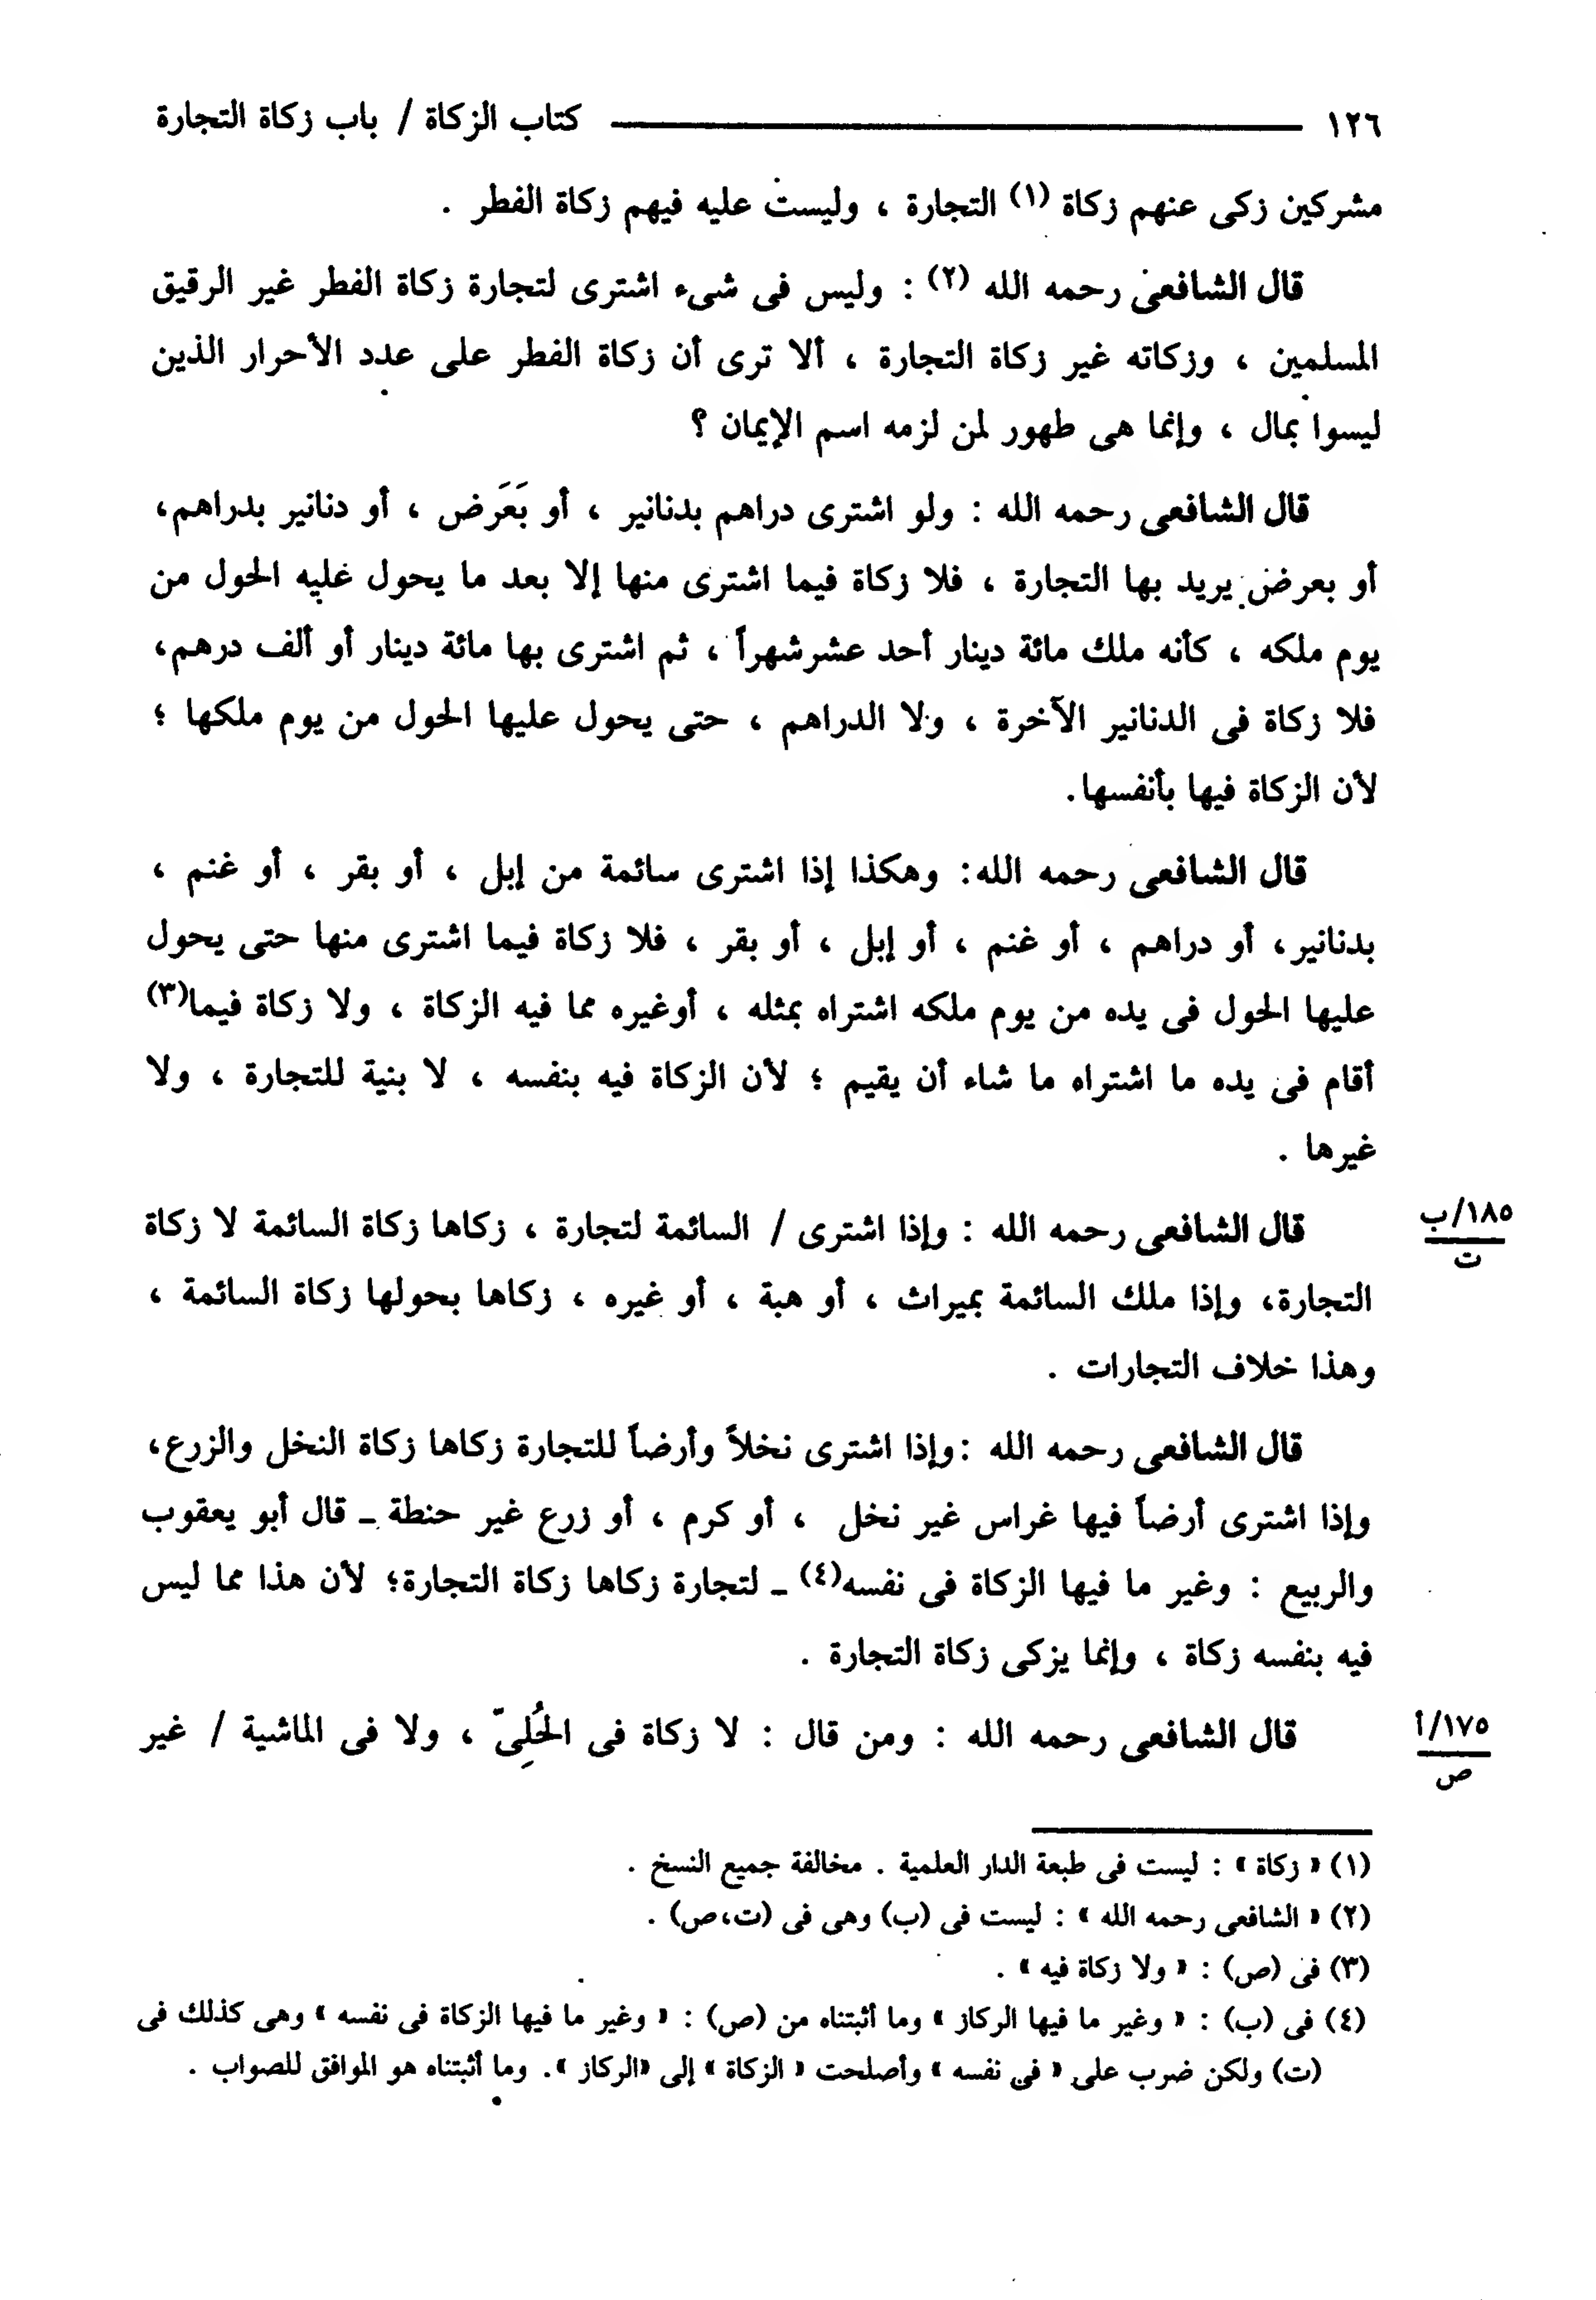 ١٢٦ كتاب الزكاة / باب زكاة التجارة
مشركين زكى عنهم زكاة (١) التجارة ، وليست عليه فيهم زكاة الفطر .
قال الشافعى رحمه الله (٢) : وليس فى شىء اشترى لتجارة زكاة الفطر غير الرقيق
المسلمين ، وزكاته غير زكاة التجارة ، ألا ترى أن زكاة الفطر على عدد الأحرار الذين
ليسوا بمال ، وإنما هى طهور لمن لزمه اسم الإيمان ؟
قال الشافعى رحمه الله : ولو اشترى دراهم بدنانير ، أو بَعَرض ، أو دنانير بدراهم،
أو بعرض يريد بها التجارة ، فلا زكاة فيما اشترى منها إلا بعد ما يحول عليه الحول من
يوم ملكه ، كأنه ملك مائة دينار أحد عشرشهراً ، ثم اشترى بها مائة دينار أو ألف درهم،
فلا زكاة فى الدنانير الآخرة ، ولا الدراهم ، حتى يحول عليها الحول من يوم ملكها ؛
لأن الزكاة فيها بأنفسها.
قال الشافعى رحمه الله: وهكذا إذا اشترى سائمة من إبل ، أو بقر ، أو غنم ،
بدنانير، أو دراهم ، أو غنم ، أو إبل ، أو بقر ، فلا زكاة فيما اشترى منها حتى يحول
عليها الحول فى يده من يوم ملكه اشتراه بمثله ، أوغيره مما فيه الزكاة ، ولا زكاة فيما(٣)
أقام فى يده ما اشتراه ما شاء أن يقيم ؛ لأن الزكاة فيه بنفسه ، لا بنية للتجارة ، ولا
غيرها .
قال الشافعى رحمه الله : وإذا اشترى / السائمة لتجارة ، زكاها زكاة السائمة لا زكاة
١٨٥/ب
ت
التجارة، وإذا ملك السائمة بميراث ، أو هبة ، أو غيره ، زكاها بحولها زكاة السائمة ،
وهذا خلاف التجارات .
قال الشافعى رحمه الله :وإذا اشترى نخلاً وأرضاً للتجارة زكاها زكاة النخل والزرع،
وإذا اشترى أرضاً فيها غراس غير نخل ، أو كرم ، أو زرع غير حنطة ـ قال أبو يعقوب
والربيع : وغير ما فيها الزكاة فى نفسه(٤) ـ لتجارة زكاها زكاة التجارة؛ لأن هذا مما ليس
فيه بنفسه زكاة ، وإنما يزكى زكاة التجارة .
قال الشافعى رحمه الله : ومن قال : لا زكاة فى الحُلِىّ ، ولا فى الماشية / غير
١٧٥/أ
ص
(١) « زكاة » : ليست فى طبعة الدار العلمية . مخالفة جميع النسخ .
(٢) « الشافعى رحمه الله » : ليست فى (ب) وهى فى (ت،ص) .
(٣) فى (ص) : « ولا زكاة فيه » .
(٤) فى (ب) : « وغير ما فيها الركاز » وما أثبتناه من (ص) : « وغير ما فيها الزكاة فى نفسه » وهى كذلك فى
(ت) ولكن ضرب على « فى نفسه » وأصلحت « الزكاة » إلى «الركاز ». وما أثبتناه هو الموافق للصواب .